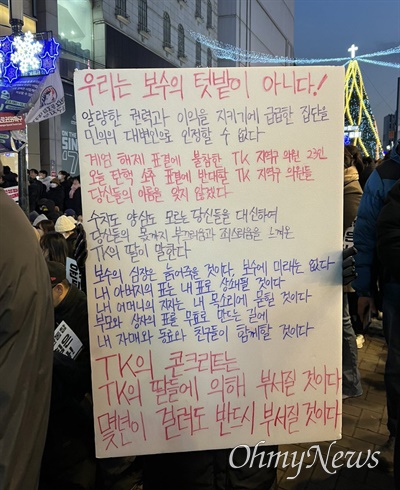 우리는 보수의 텃밭이 아니다!
알량한 권력과 이익을 지키기에 급급한 집단을
민의의 대변인으로 인정할 수 없다
계엄 해제 표결에 불참한 TK 지역구 의원 23인
오늘 탄핵 소추 표결에 반대할 TK 지역구 의원들
당신들의 이름을 잊지 않겠다
수치도 양심도 모르는 당신들을 대신하여
당신들의 몫까지 부끄러움과 죄스러움을 느끼온
TK의 딸이 말한다
보수의 심장은 늙어죽을 것이다. 보수에 미래는 없다
내 아버지의 표는 내 표로 상쇄될 것이다
내 어머니의 지지는 내 목소리에 묻힐 것이다
부모와 상사의 표를 무효로 만드는 길에
내 자매와 동료와 친구들이 함께할 것이다
TK의 콘크리트는
TK의 딸들에 의해 부서질 것이다
몇년이 걸려도 반드시 부서질 것이다
OhmyNews